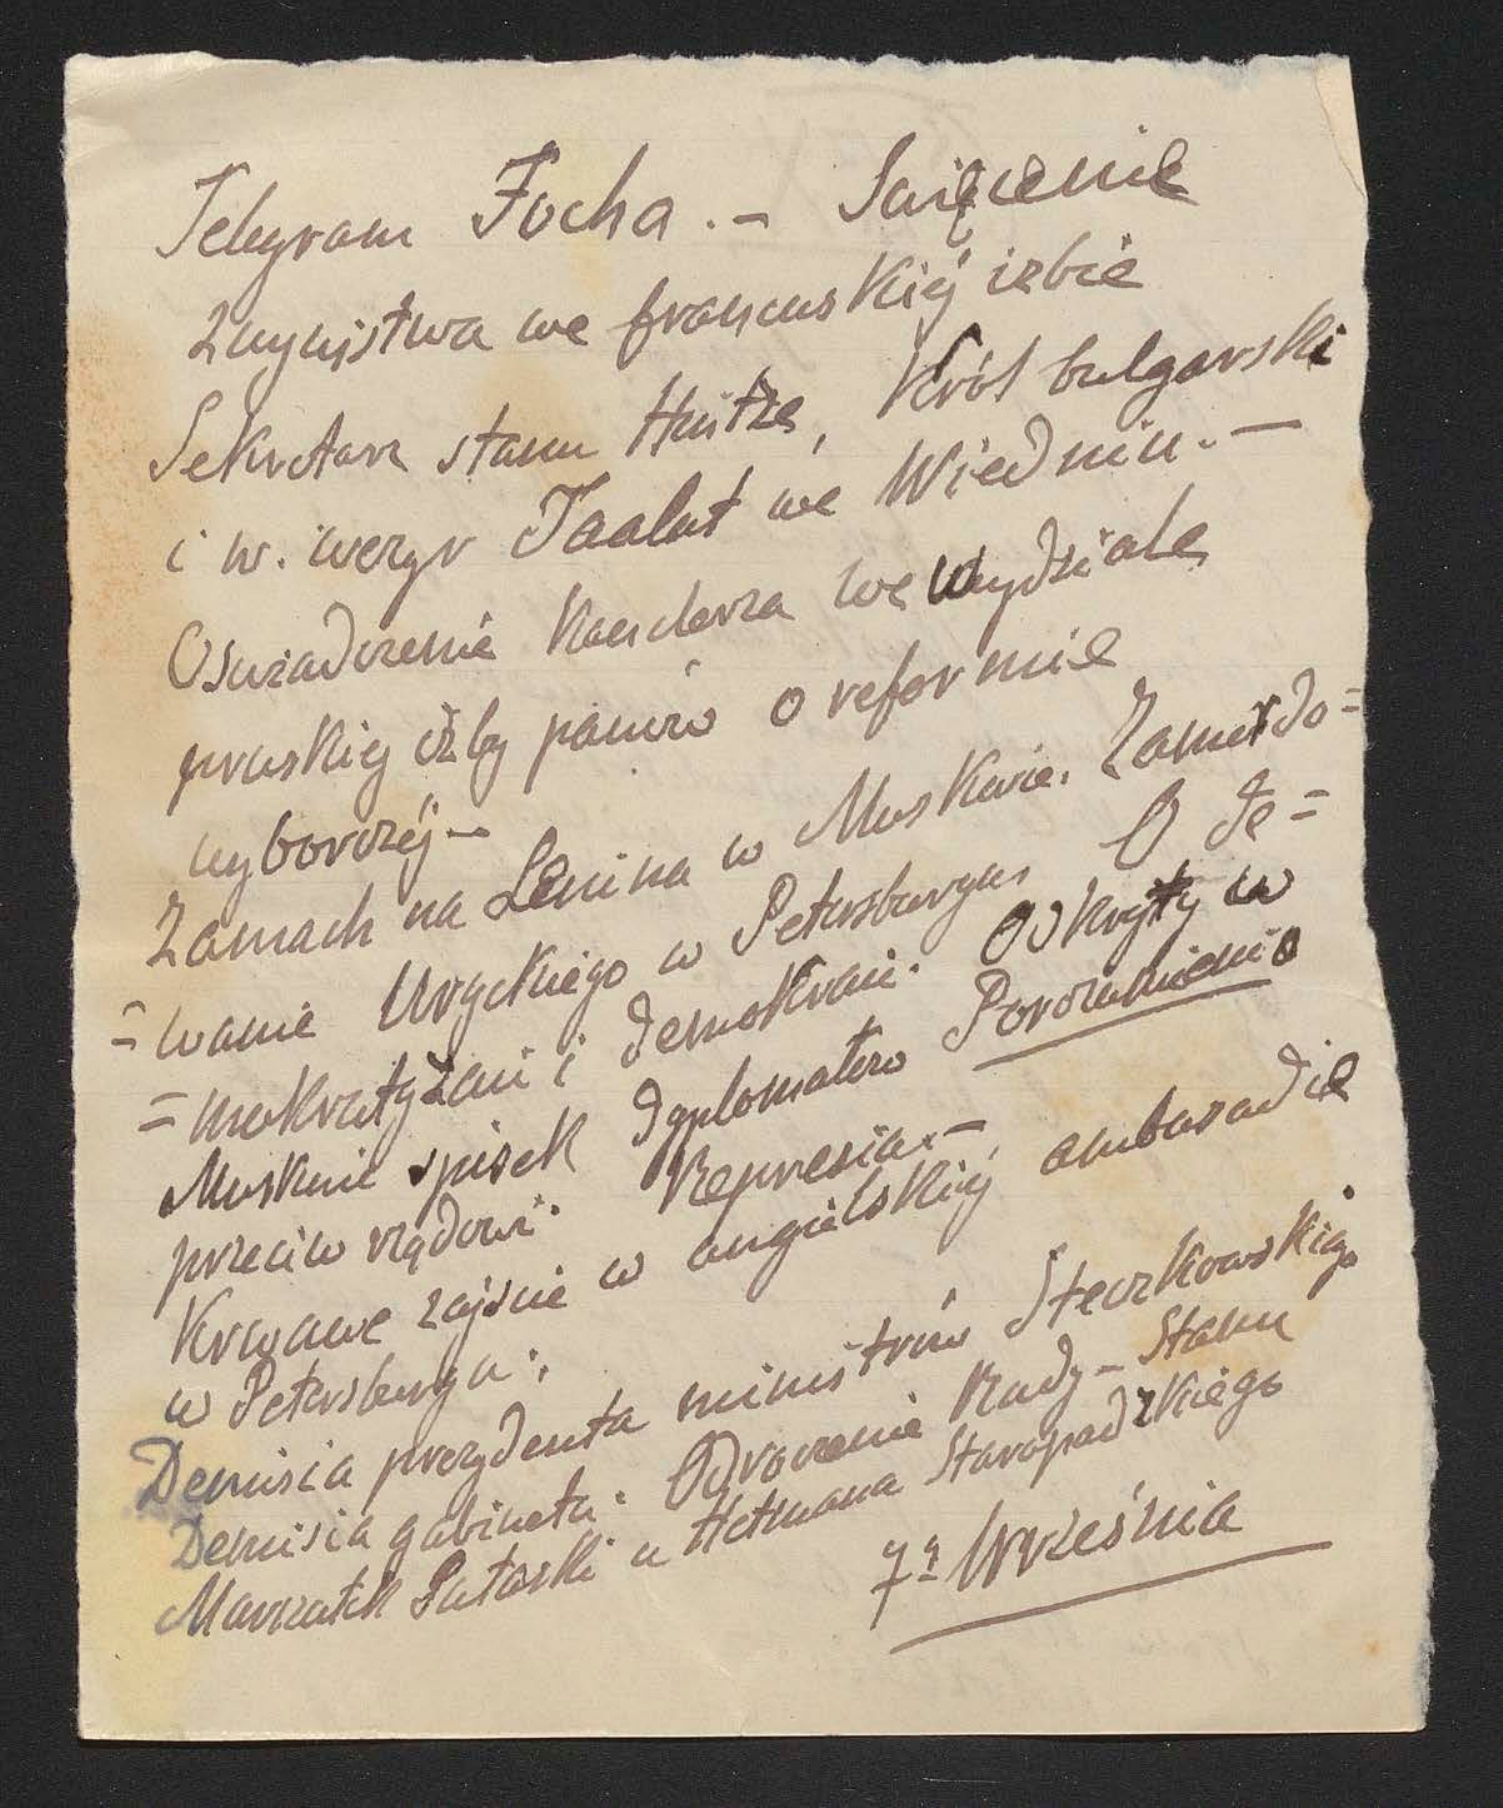 Telegram Focha. – Święcenie
zwycięstwa we francuskiéj izbie
Sekretarz stanu Hintze, Król bulgarski
i w. wezyr Taalat we Wiedniu. –
Oświadczenie Kanclerza we wydziale
pruskiéj izby panów o reformie
wyborczéj –
Zamach na Lenina w Moskwie. Zamordo=
=wanie Uryckiego w Petersburgu, O de=
=mokratyzacii i demokracii. Odkryty w
Moskwie spisek dyplomatów Porozumienia
przeciw rządowi. Represia. –
Krwawe zajście w angielskiéj ambasadie
w Petersburgu.
Demisia prezydenta ministrów Steczkowskiego
Demisia gabinetu. Odroczenie Rady – Stanu
Marszałek Pułaski u Hetmana Skoropadzkiego
7º Września